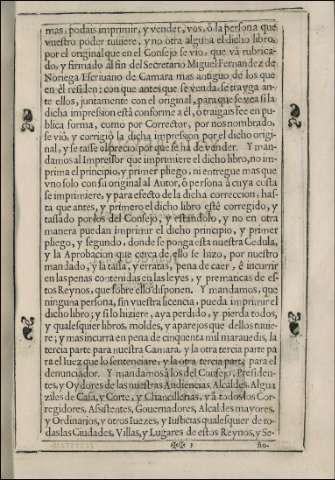 mas, podais imprimir, y vender, vos, ò la persona que
vuestro poder tuuiere, y no otra alguna el dicho libro,
por el original que en el Consejo se viò, que và rubrica-
do, y firmado al fin del Secretario Miguel Fernandez de
Noriega Escriuano de Camara mas antiguo de los que
en èl residen: con que antes que se venda, se trayga an-
te ellos, juntamente con el original, para que se vea si la
dicha impression està conforme a èl, ò traigais fee en pu-
blica forma, como por Corrector, por nos nombrado,
se viò, y corrigiò la dicha impression por el dicho origi-
nal, y se tasse el precio por que se hà de vender. Y man-
damos al Impressor que imprimiere el dicho libro, no im-
prima el principio, y primer pliego, ni entregue mas que
vno solo con su original al Autor, ò persona à cuya costa
se imprimiere, y para efecto de la dicha correccion, has-
ta que antes, y primero el dicho libro estè corregido, y
tassado por los del Consejo, y estandolo, y no en otra
manera puedan imprimir el dicho principio, y primer
pliego, y segundo, donde se ponga esta nuestra Cedula,
y la Aprobacion que cerca de ello se hizo, por nuestro
mandado, y la tassa, y erratas, pena de caer, è incurrir
en las penas contenidas en las leyes, y prematicas de es-
tos Reynos, que sobre ello disponen. Y mandamos, que
ninguna persona, sin vuestra licencia, pueda imprimir el
dicho libro; y si lo hiziere, aya perdido, y pierda todos,
y qualesquier libros, moldes, y aparejos que dellos tuuie-
re; y mas incurra en pena de cinquenta mil marauedis, la
tercia parte para nuestra Camara, y la otra tercia parte pa
ra el Iuez que lo sentenciare, y la otra tercia parte para el
denunciador. Y mandamos à los del Consejo, Presiden-
tes, y Oydores de las nuestras Audiencias, Alcaldes, Algua
ziles de Casa, y Corte, y Chancillerias, y à todos los Cor-
regidores, Assistentes, Gouernadores, Alcaldes mayores,
y Ordinarios, y otros Iuezes, y Iusticias qualesquier de to-
das las Ciudades, Villas, y Lugares de estos Reynos, y Se-
ño-